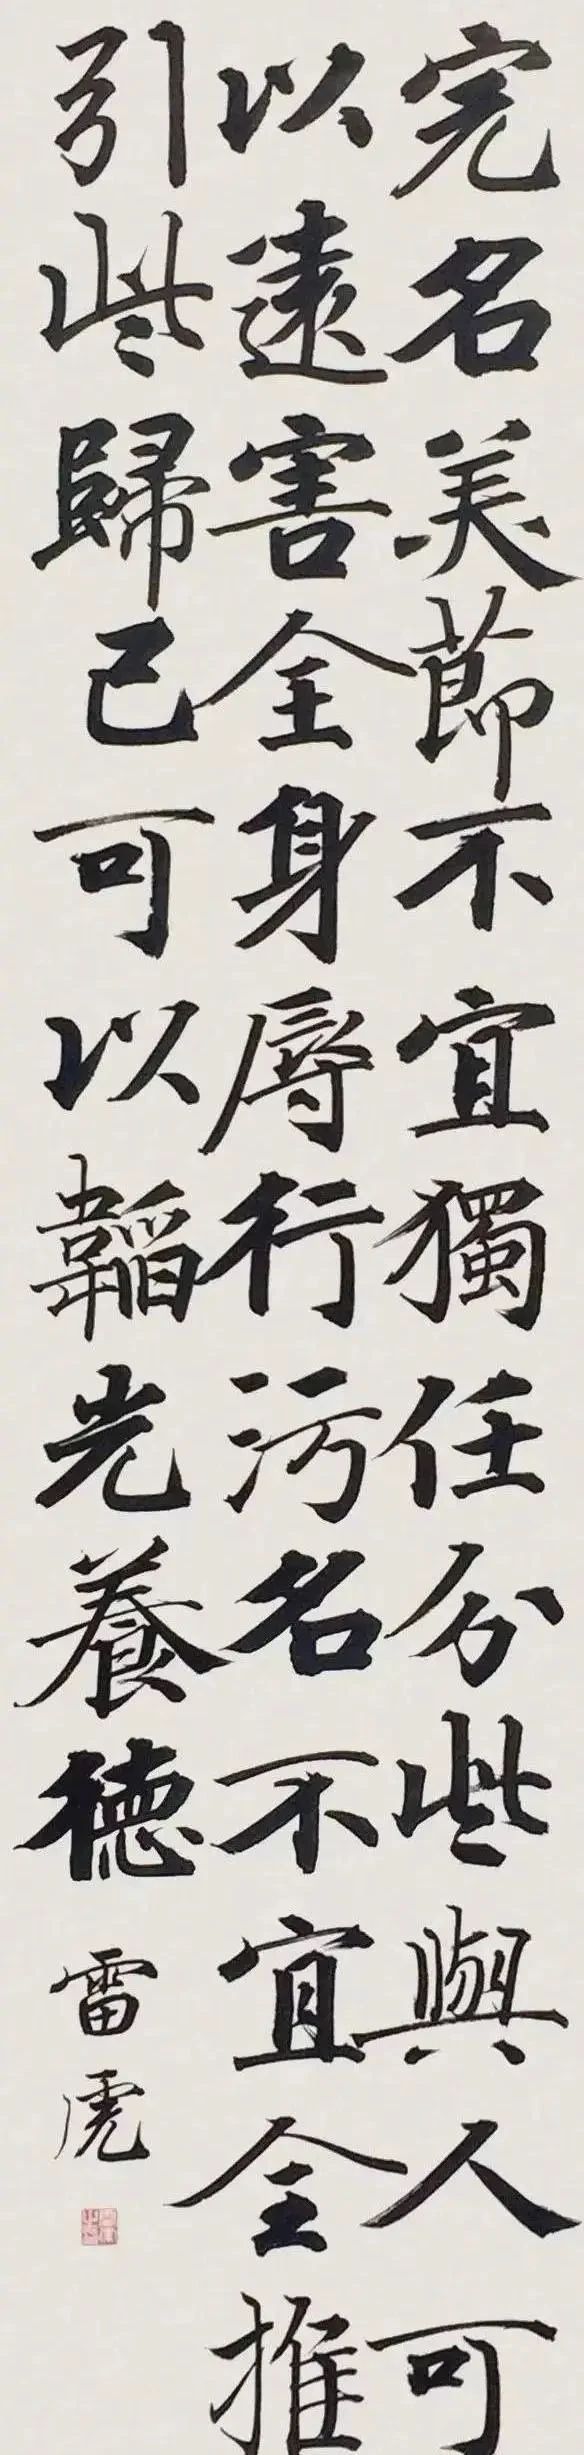 完名美節不宜獨任分些與人可
以遠害全身辱行污名不宜全推
引些歸己可以韜光養德
雷虎